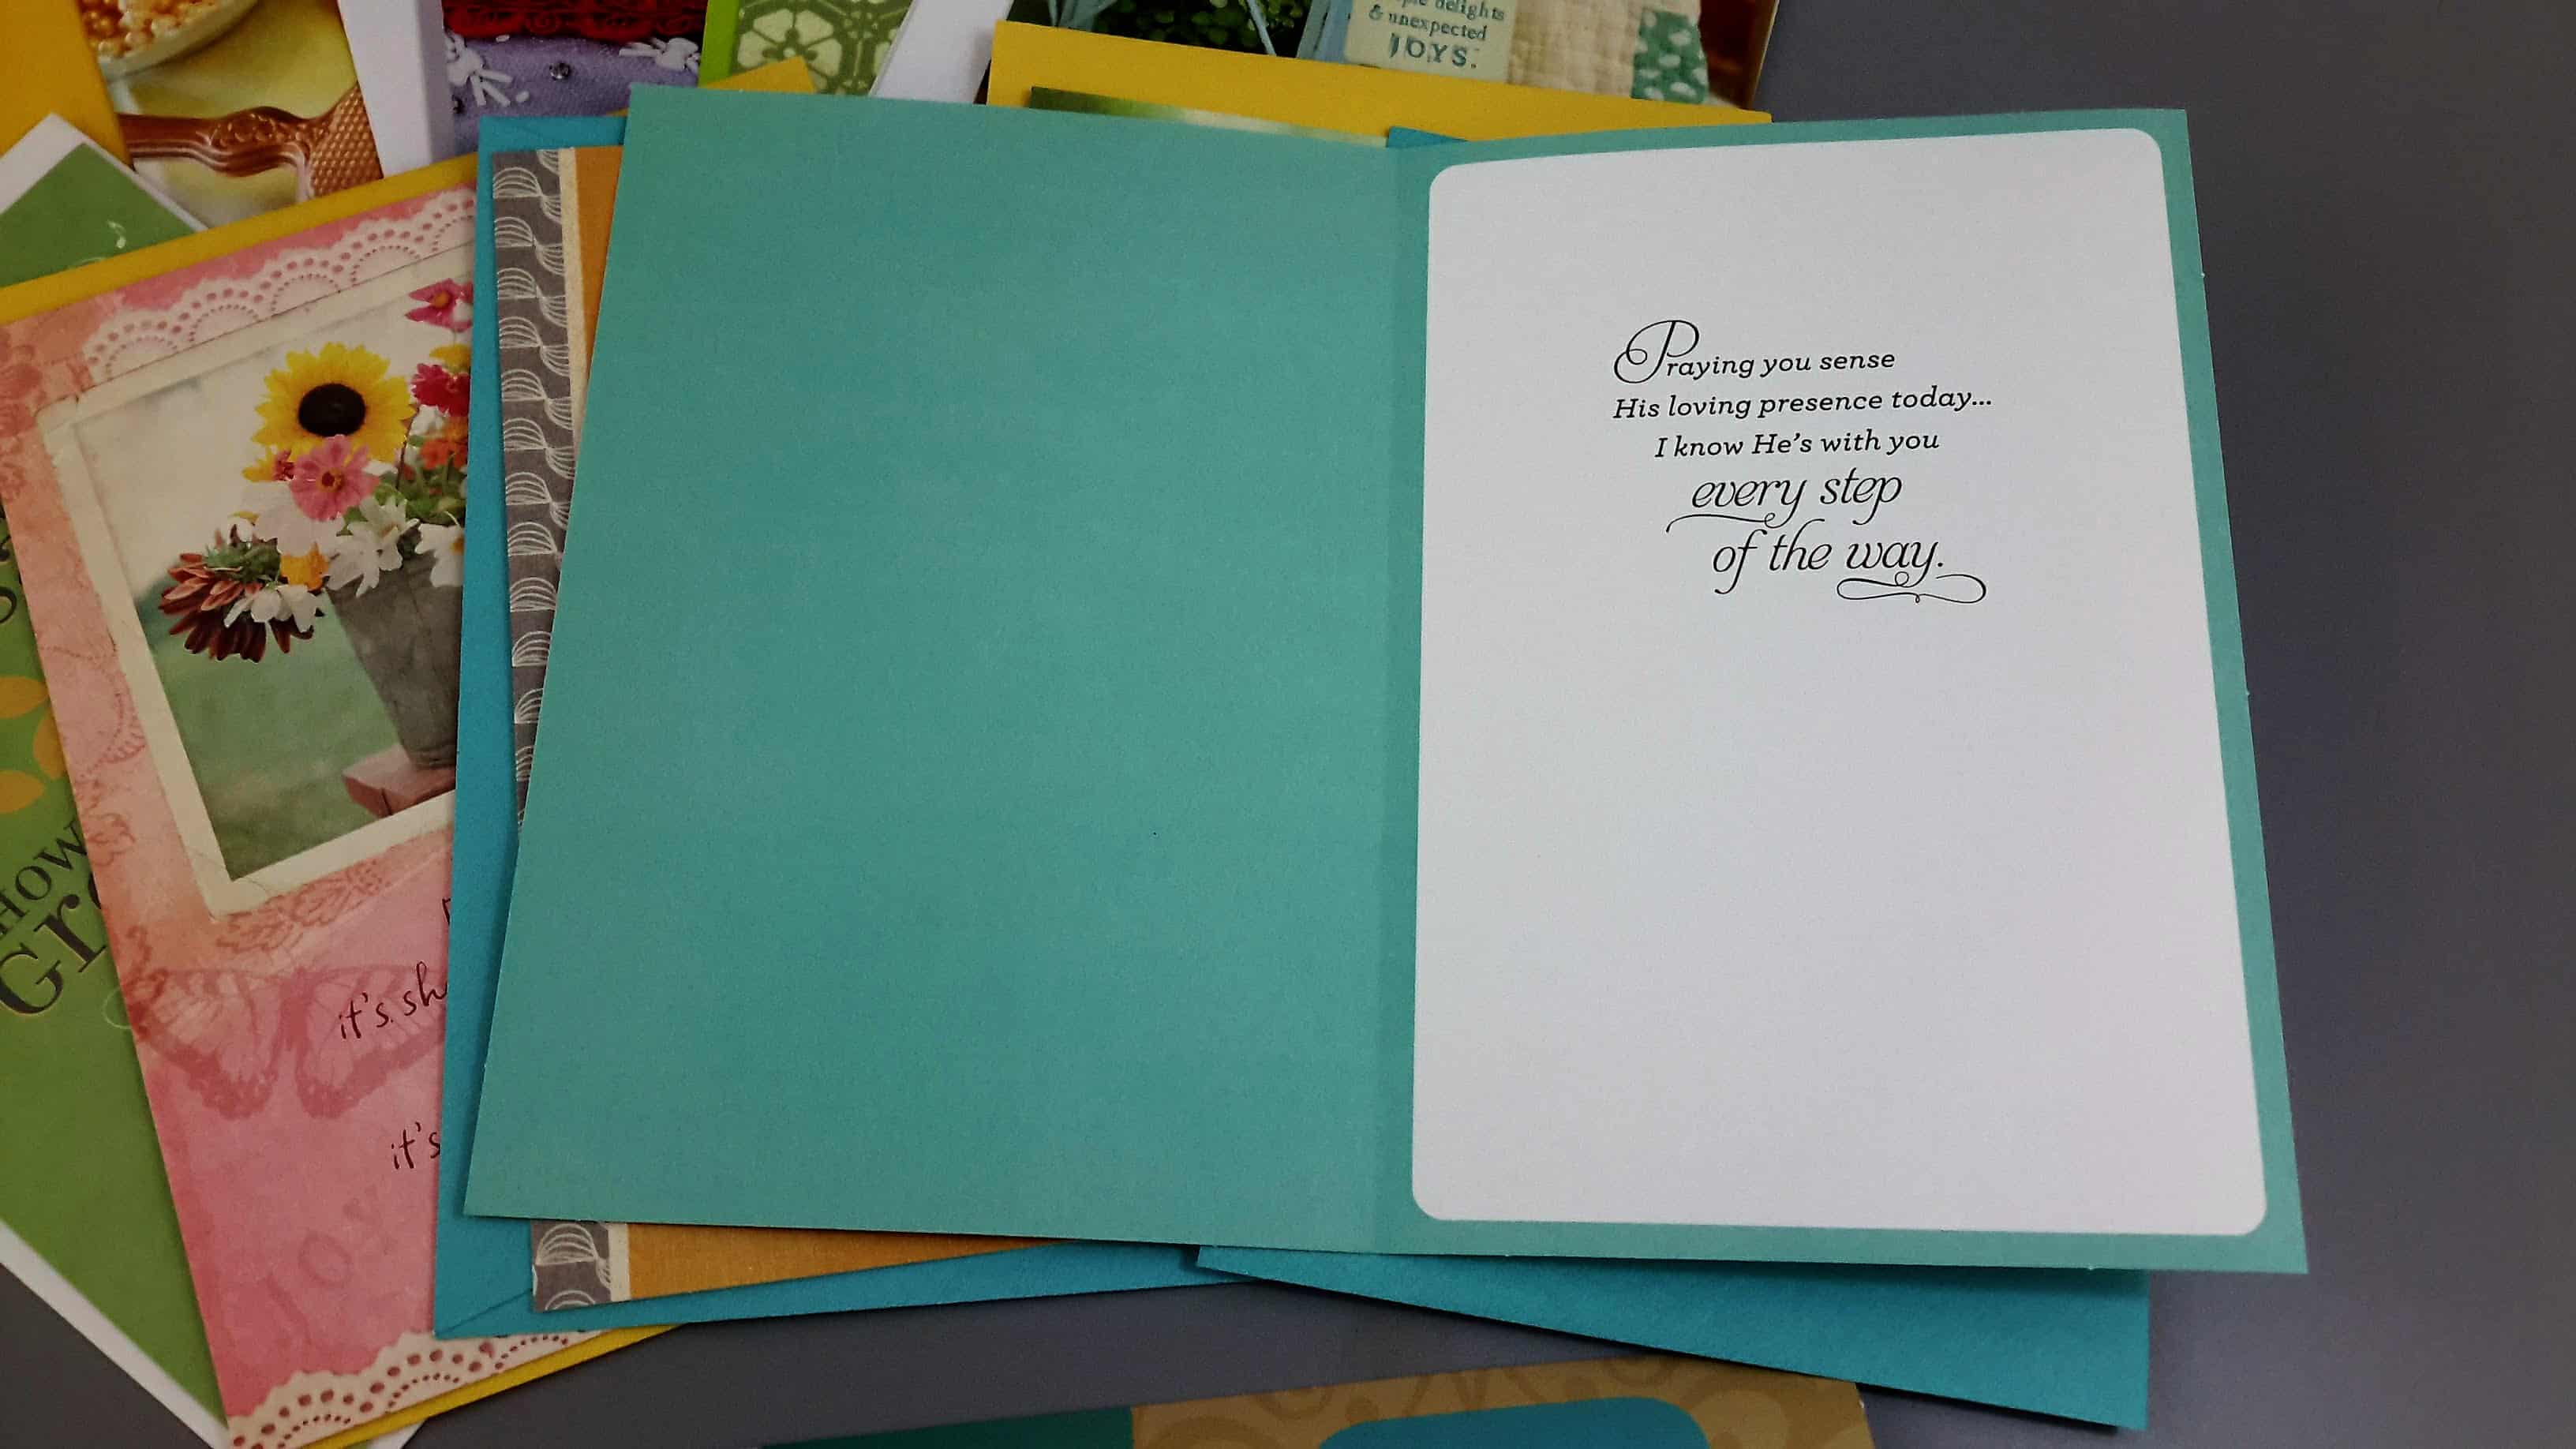 delights
& unexpected
JOYS.
Praying you sense
His loving presence today...
I know He's with you
every step
of the way.
HOW
it's
it's
Joy